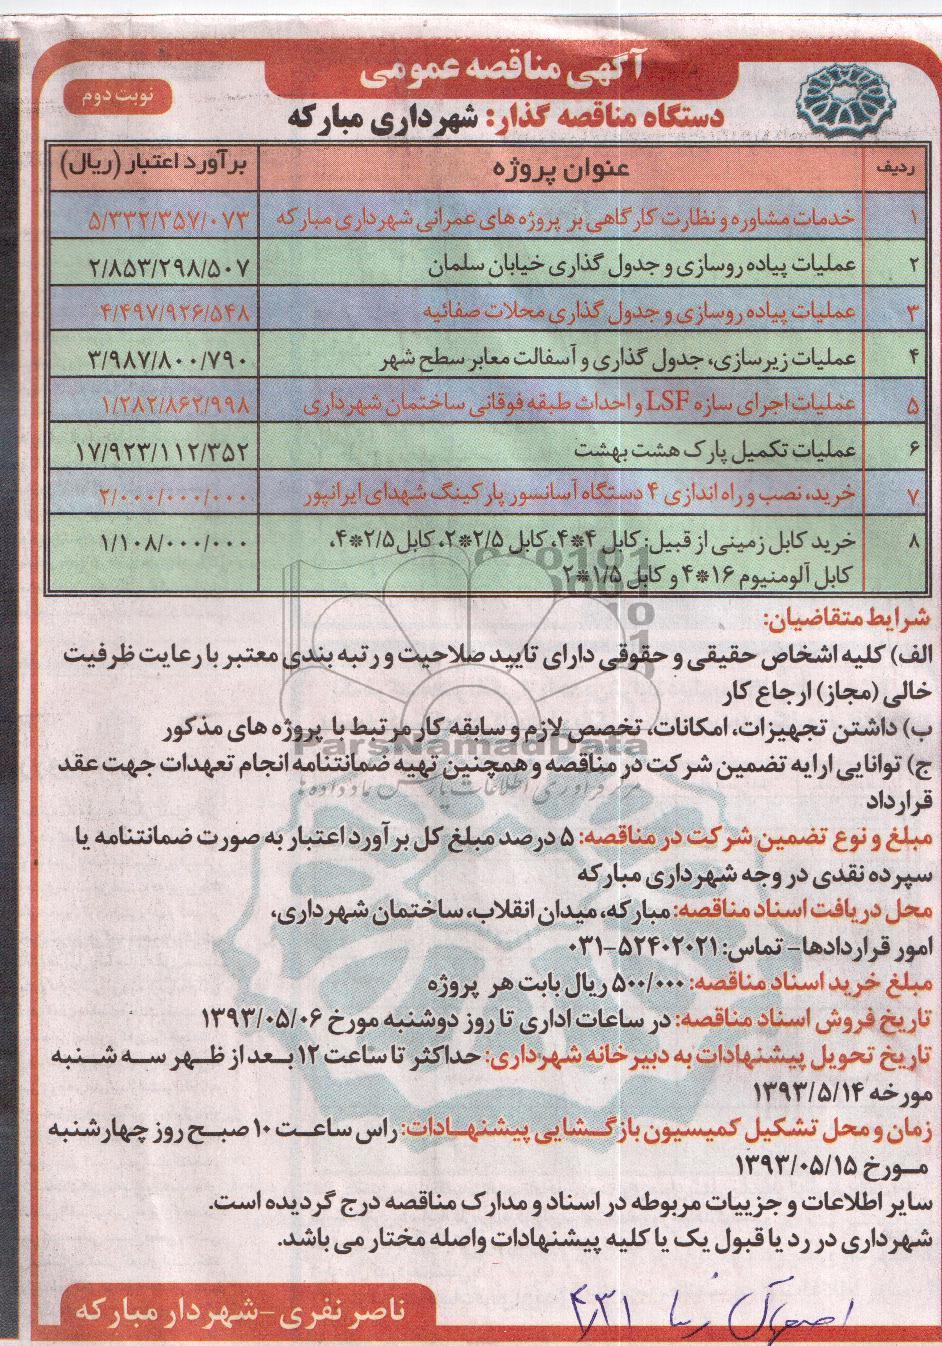 آگهی مناقصه عمومی
نوبت دوم
دستگاه مناقصه گذار: شهرداری مبارکه
ردیف عنوان پروژه برآورد اعتبار (ریال)
۱ خدمات مشاوره و نظارت کارگاهی بر پروژه های عمرانی شهرداری مبارکه ۵/۳۳۲/۳۵۷/۰۷۳
۲ عملیات پیاده روسازی و جدول گذاری خیابان سلمان ۲/۸۵۳/۲۹۸/۵۰۷
۳ عملیات پیاده روسازی و جدول گذاری محلات صفائیه ۴/۴۹۷/۹۲۶/۵۴۸
۴ عملیات زیرسازی، جدول گذاری و آسفالت معابر سطح شهر ۳/۹۸۷/۸۰۰/۷۹۰
۵ عملیات اجرای سازه LSF و احداث طبقه فوقانی ساختمان شهرداری ۱/۲۸۲/۸۶۲/۹۹۸
۶ عملیات تکمیل پارک هشت بهشت ۱۷/۹۲۳/۱۱۲/۳۵۲
۷ خرید، نصب و راه اندازی ۴ دستگاه آسانسور پارکینگ شهدای ایرانپور ۲/۰۰۰/۰۰۰/۰۰۰
۸ خرید کابل زمینی از قبیل: کابل ۴*۴، کابل ۲/۵*۲، کابل ۲/۵*۴، ۱/۱۰۸/۰۰۰/۰۰۰
کابل آلومنیوم ۱۶*۴ و کابل ۱/۵*۲
شرایط متقاضیان:
الف) کلیه اشخاص حقیقی و حقوقی دارای تایید صلاحیت و رتبه بندی معتبر با رعایت ظرفیت
خالی (مجاز) ارجاع کار
ب) داشتن تجهیزات، امکانات، تخصص لازم و سابقه کار مرتبط با پروژه های مذکور
ParsNamadData
ج) توانایی ارایه تضمین شرکت در مناقصه و همچنین تهیه ضمانتنامه انجام تعهدات جهت عقد
قرارداد
مبلغ و نوع تضمین شرکت در مناقصه: ۵ درصد مبلغ کل برآورد اعتبار به صورت ضمانتنامه یا
سپرده نقدی در وجه شهرداری مبارکه
محل دریافت اسناد مناقصه: مبارکه، میدان انقلاب، ساختمان شهرداری،
امور قراردادها- تماس: ۵۲۴۰۲۰۲۱-۰۳۱
مبلغ خرید اسناد مناقصه: ۵۰۰/۰۰۰ ریال بابت هر پروژه
تاریخ فروش اسناد مناقصه: در ساعات اداری تا روز دوشنبه مورخ ۱۳۹۳/۰۵/۰۶
تاریخ تحویل پیشنهادات به دبیرخانه شهرداری: حداکثر تا ساعت ۱۲ بعد از ظهر سه شنبه
مورخه ۱۳۹۳/۵/۱۴
زمان و محل تشکیل کمیسیون بازگشایی پیشنهادات: راس ساعت ۱۰ صبح روز چهارشنبه
مورخ ۱۳۹۳/۰۵/۱۵
سایر اطلاعات و جزییات مربوطه در اسناد و مدارک مناقصه درج گردیده است.
شهرداری در رد یا قبول یک یا کلیه پیشنهادات واصله مختار می باشد.
ناصر نفری - شهردار مبارکه
اصفهان زیبا ۴/۳۱